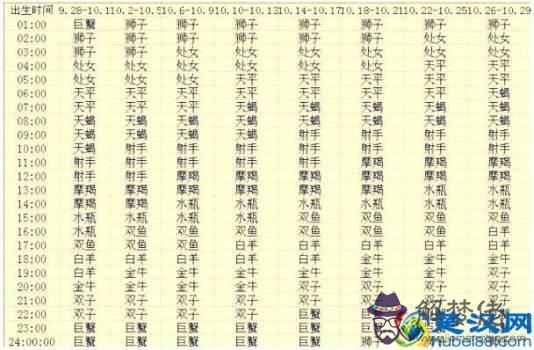 出生时间 9.28-10.1 10.2-10.5 10.6-10.9 10.10-10.13 10.14-10.17 10.18-10.21 10.22-10.25 10.26-10.29
01:00 巨蟹 狮子 狮子 狮子 狮子 狮子 狮子 狮子
02:00 狮子 狮子 狮子 狮子 狮子 狮子 处女 处女
03:00 狮子 狮子 处女 处女 处女 处女 处女 处女
04:00 处女 处女 处女 处女 处女 处女 天平 天平
05:00 处女 处女 处女 天平 天平 天平 天平 天平
06:00 天平 天平 天平 天平 天平 天平 天平 天蝎
07:00 天平 天平 天平 天平 天蝎 天蝎 天蝎 天蝎
08:00 天蝎 天蝎 天蝎 天蝎 天蝎 天蝎 天蝎 天蝎
09:00 天蝎 天蝎 天蝎 天蝎 射手 射手 射手 射手
10:00 天蝎 射手 射手 射手 射手 射手 射手 射手
11:00 射手 射手 射手 射手 射手 摩羯 摩羯 摩羯
12:00 射手 射手 摩羯 摩羯 摩羯 摩羯 摩羯 摩羯
13:00 摩羯 摩羯 摩羯 摩羯 摩羯 摩羯 水瓶 水瓶
14:00 摩羯 摩羯 水瓶 水瓶 水瓶 水瓶 水瓶 水瓶
15:00 水瓶 水瓶 水瓶 水瓶 双鱼 双鱼 双鱼 双鱼
16:00 水瓶 双鱼 双鱼 双鱼 双鱼 双鱼 双鱼 白羊
17:00 双鱼 双鱼 双鱼 白羊 白羊 白羊 白羊 白羊
18:00 白羊 白羊 白羊 白羊 白羊 金牛 金牛 金牛
19:00 白羊 金牛 金牛 金牛 金牛 金牛 金牛 双子
20:00 金牛 金牛 金牛 金牛 双子 双子 双子 双子
21:00 双子 双子 双子 双子 双子 双子
22:00 双子 双子 双子 双子 巨蟹
23:00 巨蟹 巨蟹 巨蟹 巨蟹 巨蟹
24:00:00 巨蟹 巨蟹 巨蟹 巨蟹 巨蟹 狮子
解梦佬
楚汉网